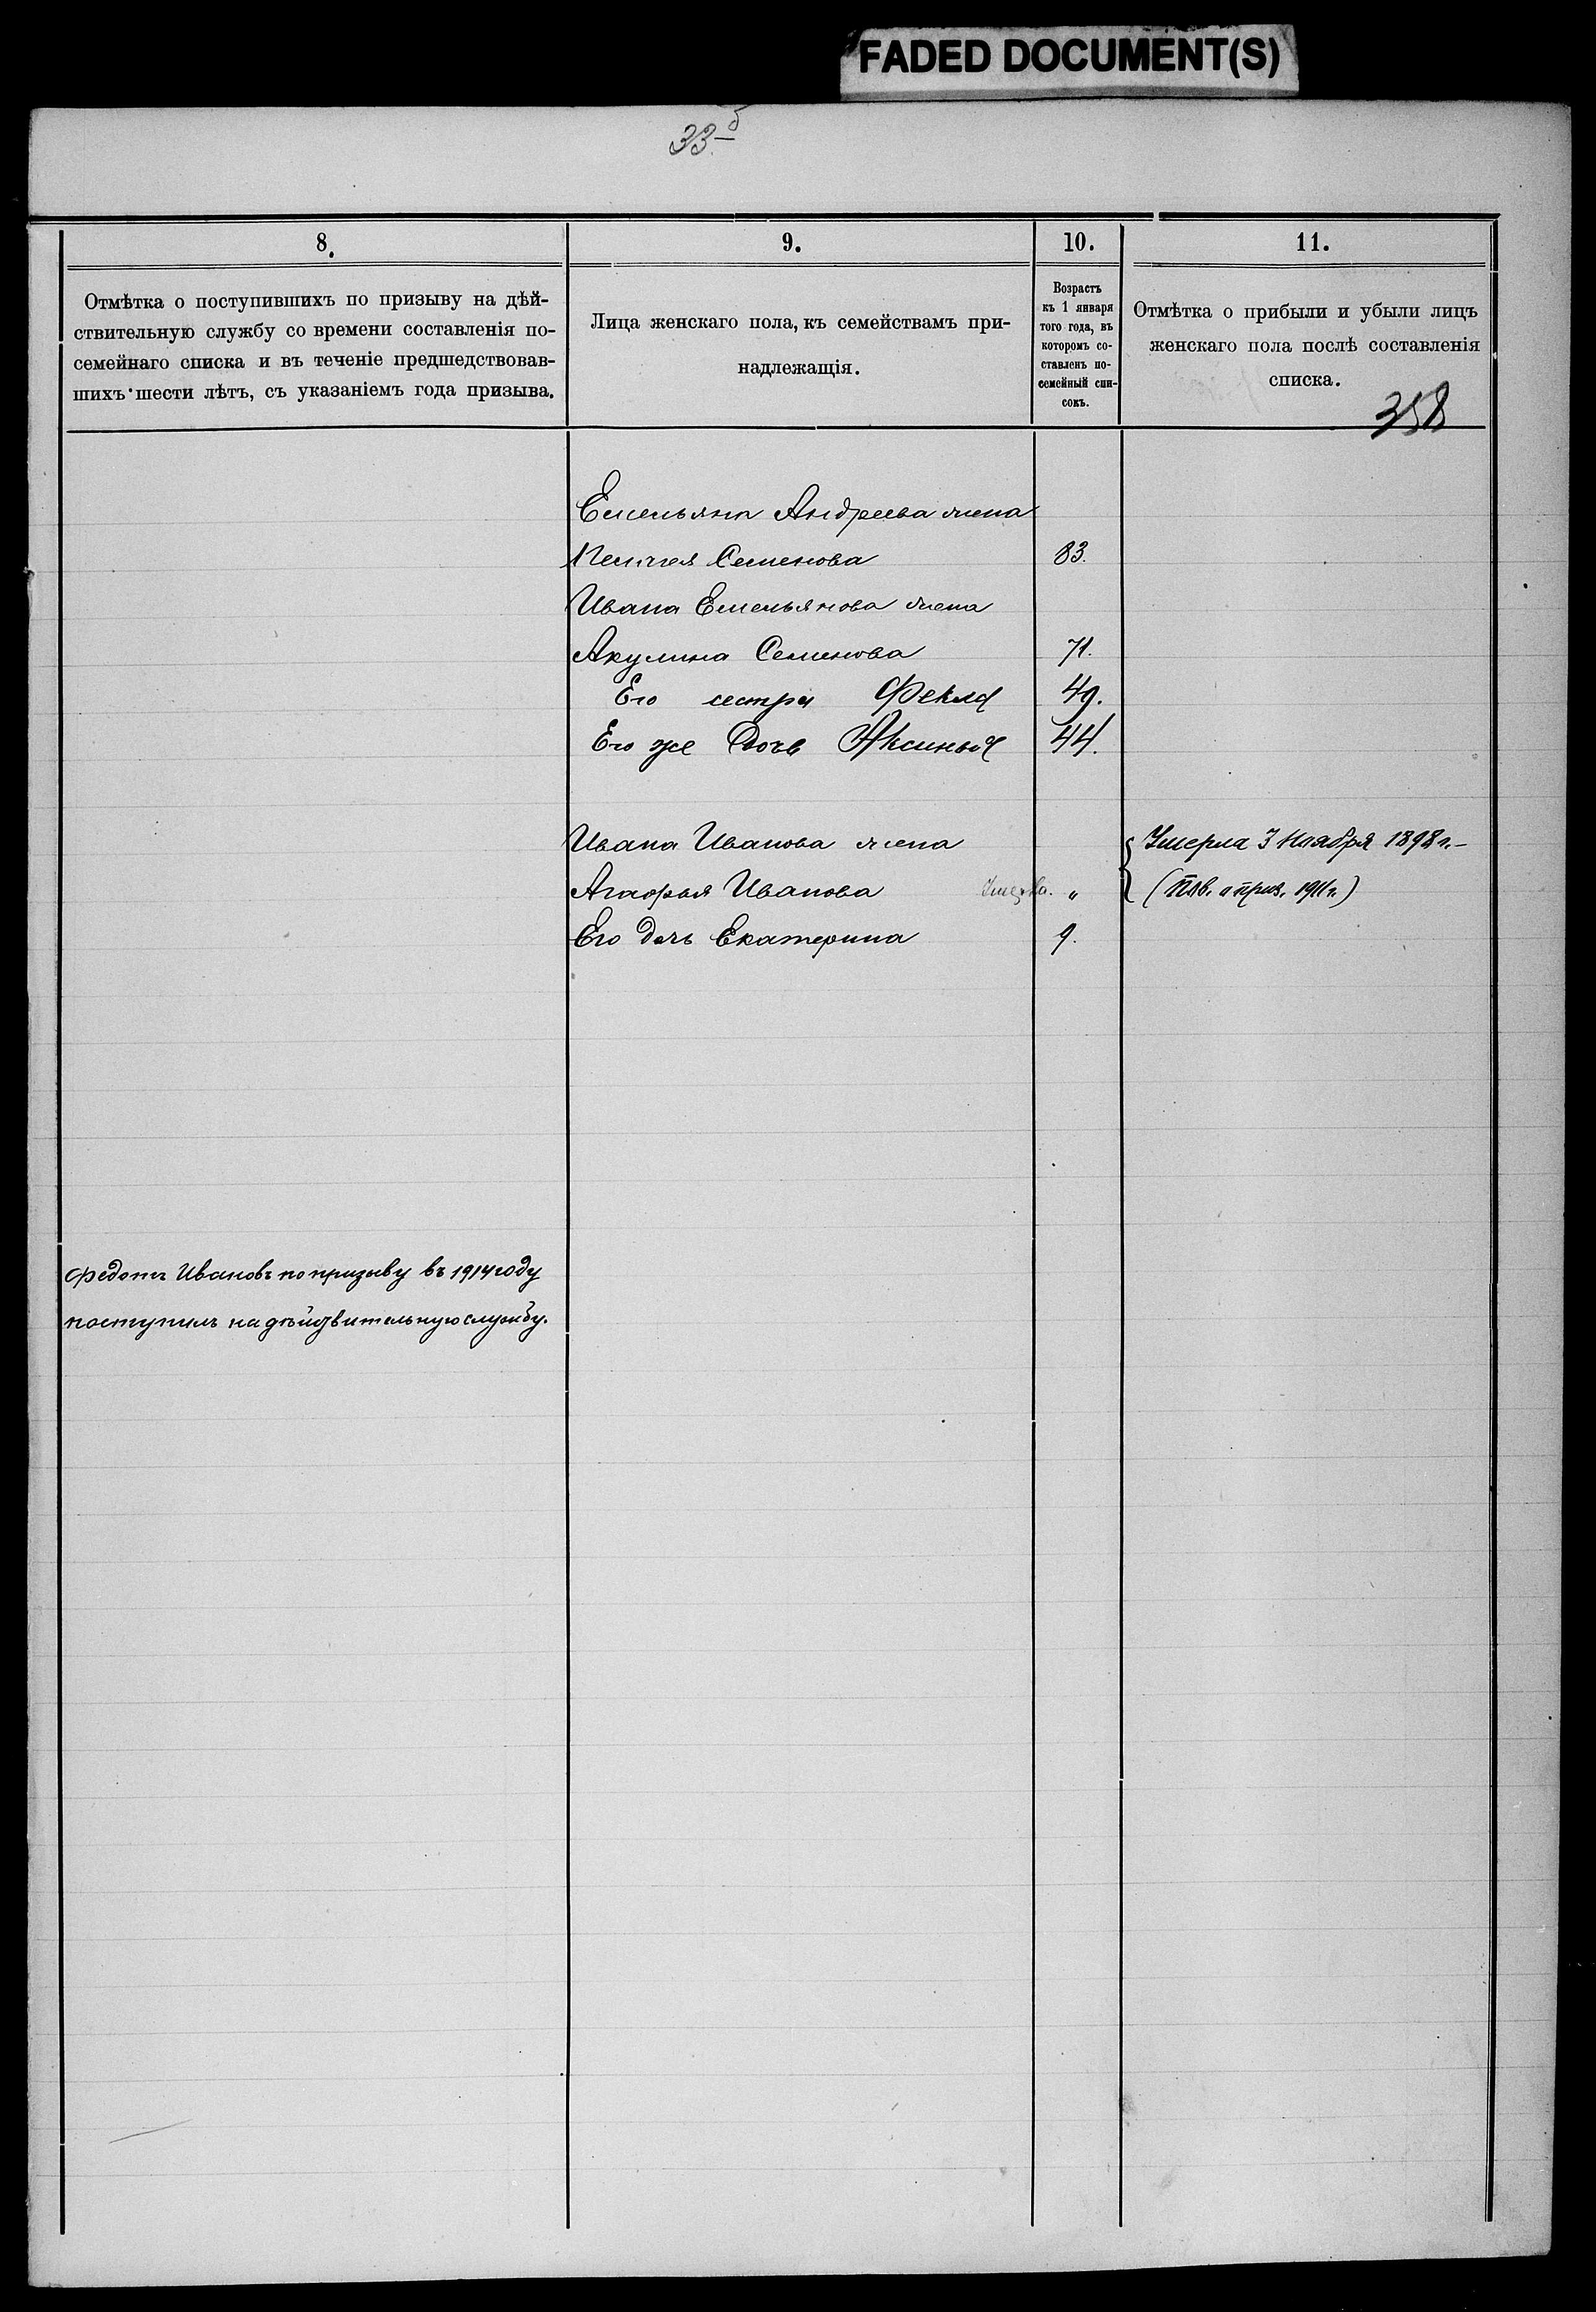 FADED DOCUMENT(S)
33.б
8.
Отмѣтка о поступившихъ по призыву на дѣй-
ствительную службу со времени составленія по-
семейнаго списка и въ теченіе предшедствовав-
шихъ шести лѣтъ, съ указаніемъ года призыва.
9.
Лица женскаго пола, къ семействамъ при-
надлежащія.
10.
Возрастъ
къ 1 января
того года, въ
которомъ со-
ставленъ по-
семейный спи-
сокъ.
11.
Отмѣтка о прибыли и убыли лицъ
женскаго пола послѣ составленія
списка.
358
Емельяна Андреева жена
Семенова 83.
Ивана Емельянова жена
Акулина Семенова 71.
Его сестра Фекла 49.
Его же дочь Аксинья 44.
Ивана Иванова жена
Агафья Иванова Умерла. „
Умерла 3 Ноября 1898 г.–
(Пов. о приз. 1911 г.)
Его дочь Екатерина 9.
Федотъ Ивановъ по призыву въ 1914 году
поступилъ на дѣйствительную службу.